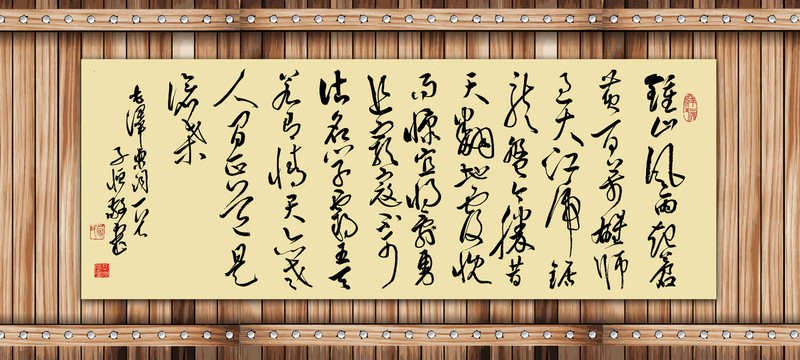 鍾山风雨起蒼
黄百万雄师
过大江虎踞
龙盘今胜昔
天翻地覆慨
而慷宜将剩勇
追穷寇不可
沽名学霸王天
若有情天亦老
人间正道是
滄桑
毛澤東词一首